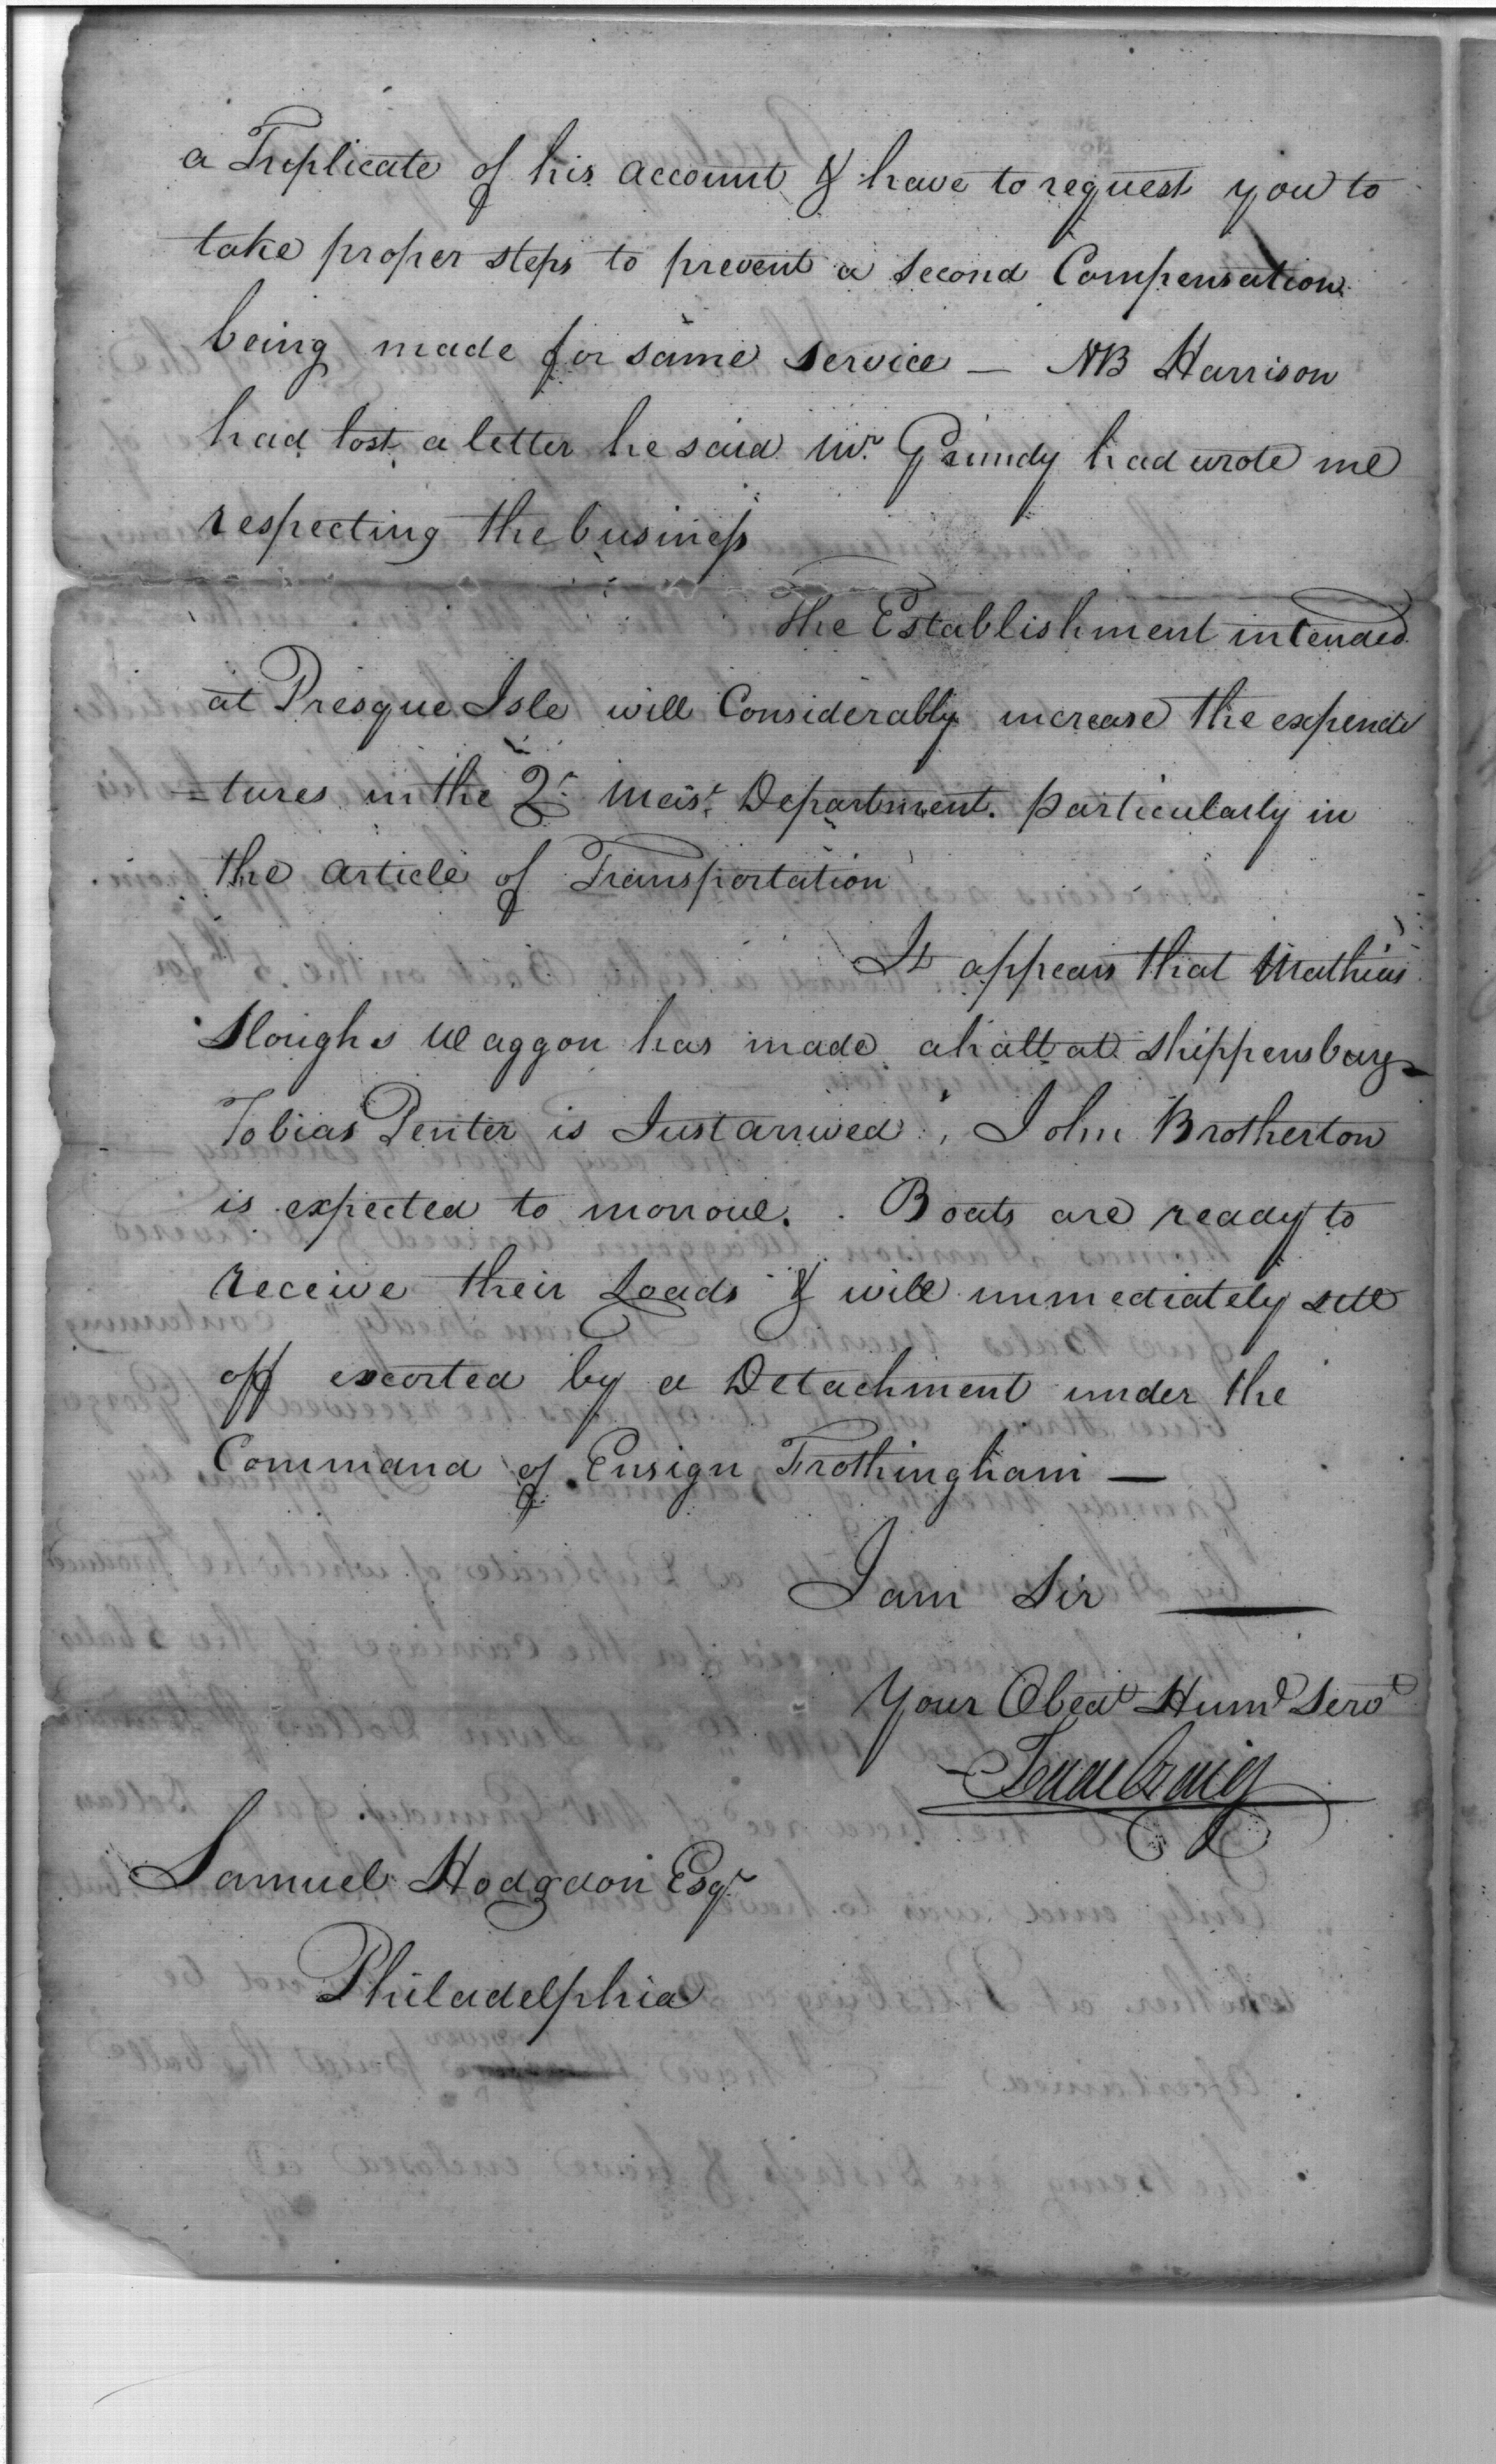 a Triplicate of his account & have to request you to
take proper steps to prevent a second Compensation
being made for same service — NB Harrison
had lost a letter he said Mr. Grundy had wrote me
respecting the business
The Establishment intended
at Presque Isle will Considerably increase the expendi
-tures in the Qr. Mast. Department. particularly in
the article of Transportation
It appears that Mathias
Sloughs Waggon has made a halt at Shippensburg
Tobias Penter is Just arrived, John Brotherton
is expected to morrow. Boats are ready to
receive their Loads & will immediately sett
off escorted by a Detachment under the
Command of Ensign Frothingham —
I am Sir —
Your Obedt Huml Servt
Isaac Craig
Samuel Hodgdon Esqr.
Philadelphia